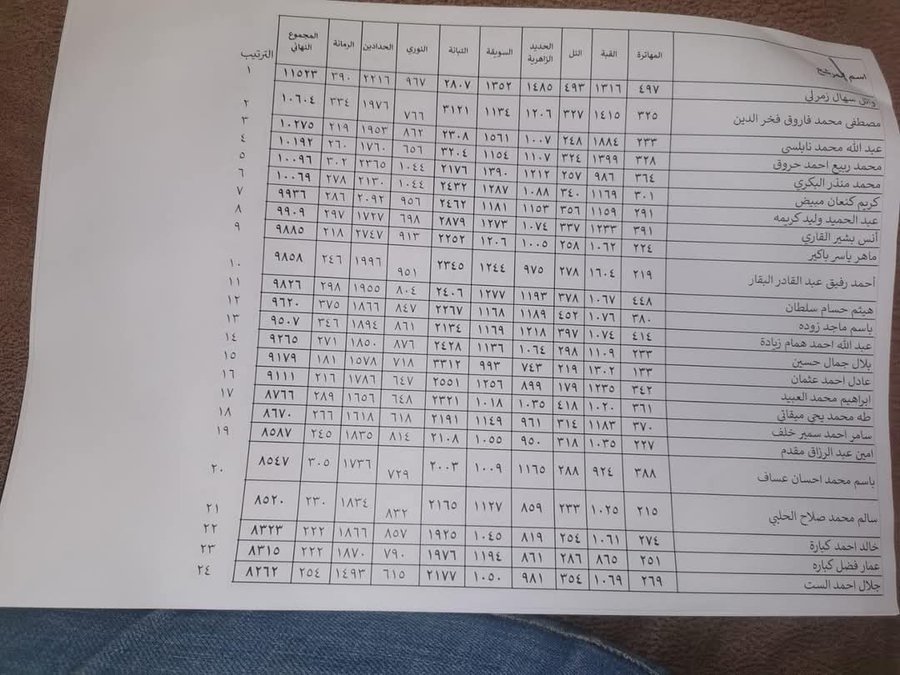 اسم المرشح المهاترة القبة التل الحديد الزاهرية السويقة التبانة النوري الحدادين الرمانة المجموع النهائي الترتيب
وائل سهال زمرلي ٤٩٧ ١٣١٦ ٤٩٣ ١٤٨٥ ١٣٥٢ ٢٨٠٧ ٩٦٧ ٢٢١٦ ٣٩٠ ١١٥٢٣ ١
مصطفى محمد فاروق فخر الدين ٣٢٥ ١٤١٥ ٣٢٧ ١٢٠٦ ١١٣٤ ٣١٢١ ٧٦٦ ١٩٧٦ ٣٣٤ ١٠٦٠٤ ٢
عبد الله محمد نابلسي ٢٣٣ ١٨٨٤ ٢٤٨ ١٠٠٧ ١٥٦١ ٢٣٠٨ ٨٦٢ ١٩٥٣ ٢١٩ ١٠٢٧٥ ٣
محمد ربيع احمد حروق ٣٢٨ ١٣٩٩ ٣٢٤ ١١٠٧ ١١٥٤ ٣٢٠٤ ٦٥٦ ١٧٦٠ ٢٦٠ ١٠١٩٢ ٤
محمد منذر البكري ٣٦٤ ٩٨٦ ٢٥٧ ١٢١٢ ١٣٩٠ ٢١٧٦ ١٠٤٤ ٢٣٦٥ ٣٠٢ ١٠٠٩٦ ٥
كريم كنعان مبيض ٣٠١ ١١٦٩ ٣٤٠ ١٠٨٨ ١٢٨٧ ٢٤٣٢ ١٠٤٤ ٢١٣٠ ٢٧٨ ١٠٠٦٩ ٦
عبد الحميد وليد كريمه ٢٩١ ١١٥٩ ٣٥٦ ١١٥٣ ١١٨١ ٢٤٦٢ ٩٥٦ ٢٠٩٢ ٢٨٦ ٩٩٣٦ ٧
أنس بشير القاري ٣٩١ ١٢٣٣ ٣٣٧ ١٠٧٤ ١٢٧٣ ٢٨٧٩ ٦٩٨ ١٧٢٧ ٢٩٧ ٩٩٠٩ ٨
ماهر ياسر باكير ٢٢٤ ١٠٦٢ ٢٥٨ ١٠٠٥ ١٢٠٦ ٢٢٥٢ ٩١٣ ٢٧٤٧ ٢١٨ ٩٨٨٥ ٩
أحمد رفيق عبد القادر البقار ٢١٩ ١٦٠٤ ٢٧٨ ٩٧٥ ١٢٤٤ ٢٣٤٥ ٩٥١ ١٩٩٦ ٢٤٦ ٩٨٥٨ ١٠
هيثم حسام سلطان ٤٤٨ ١٠٦٧ ٣٧٨ ١١٩٣ ١٢٧٧ ٢٤٠٦ ٨٠٤ ١٩٥٥ ٢٩٨ ٩٨٢٦ ١١
باسم ماجد زوده ٣٨٠ ١٠٧٦ ٤٥٢ ١١٨٩ ١١٦٨ ٢٢٦٧ ٨٤٧ ١٨٦٦ ٣٧٥ ٩٦٢٠ ١٢
عبد الله احمد همام زيادة ٤١٤ ١٠٧٤ ٣٩٧ ١٢١٨ ١١٦٩ ٢١٣٤ ٨٦١ ١٨٩٤ ٣٤٦ ٩٥٠٧ ١٣
بلال جمال حسين ٢٣٣ ١١٠٩ ٢٩٨ ١٠٦٤ ١١٣٦ ٢٤٢٨ ٨٧٦ ١٨٥٠ ٢٧١ ٩٢٦٥ ١٤
عادل احمد عثمان ١٣٣ ١٣٠٢ ٢١٩ ٧٤٣ ٩٩٣ ٣٣١٢ ٧١٨ ١٥٧٨ ١٨١ ٩١٧٩ ١٥
ابراهيم محمد العبيد ٣٤٢ ١٢٣٥ ١٧٩ ٨٩٩ ١٢٥٦ ٢٥٥١ ٦٤٧ ١٧٨٦ ٢١٦ ٩١١١ ١٦
طه محمد يحي ميقاتي ٣٦١ ١٠٢٠ ٤١٨ ١٠٣٥ ١٠١٨ ٢٣٢١ ٦٤٨ ١٦٥٦ ٢٨٩ ٨٧٦٦ ١٧
سامر احمد سمير خلف ٣٧٠ ١١٨٣ ٣١٤ ٩٦١ ١١٤٩ ٢١٩١ ٦١٨ ١٦١٨ ٢٦٦ ٨٦٧٠ ١٨
امين عبد الرزاق مقدم ٢٢٧ ١٠٣٥ ٣١٨ ٩٥٠ ١٠٥٥ ٢١٠٨ ٨١٤ ١٨٣٥ ٢٤٥ ٨٥٨٧ ١٩
باسم محمد احسان عساف ٣٨٨ ٩٢٤ ٢٨٨ ١١٦٥ ١٠٠٩ ٢٠٠٣ ٧٢٩ ١٧٣٦ ٣٠٥ ٨٥٤٧ ٢٠
سالم محمد صلاح الحلبي ٢١٥ ١٠٢٥ ٢٣٣ ٨٥٩ ١١٢٧ ٢١٦٥ ٨٣٢ ١٨٣٤ ٢٣٠ ٨٥٢٠ ٢١
خالد احمد كبارة ٢٧٤ ١٠٦١ ٢٥٤ ٨١٩ ١٠٤٥ ١٩٢٥ ٨٥٧ ١٨٦٦ ٢٢٢ ٨٣٢٣ ٢٢
عمار فضل كباره ٢٥١ ٨٦٥ ٢٨٦ ٨٦١ ١١٩٤ ١٩٧٦ ٧٩٠ ١٨٧٠ ٢٢٢ ٨٣١٥ ٢٣
جلال احمد الست ٢٦٩ ١٠٦٩ ٣٥٤ ٩٨١ ١٠٥٠ ٢١٧٧ ٦١٥ ١٤٩٣ ٢٥٤ ٨٢٦٢ ٢٤